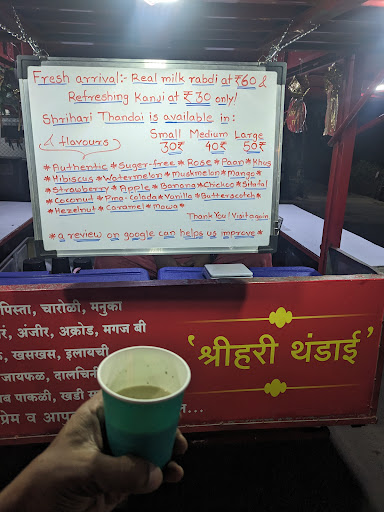 Fresh arrival:- Real milk rabdi at ₹60 &
Refreshing Kanji at ₹30 only!
Shrihari Thandai is available in:
flavours Small Medium Large
30₹ 40₹ 50₹
*Authentic *Suger-free *Rose *Paan *Khus
*Hibiscus *Watermelon *Muskmelon *Mango*
*Strawberry *Apple *Banana *Chickoo *Sitafal
*Coconut *Pina-colada *Vanilla *Butterscotch*
*Hezelnut *Caramel *Mawa*
Thank You! Visit again
*a review on google can helps us improve*
पिस्ता, चारोळी, मनुका
अंजीर, अक्रोड, मगज बी
खसखस, इलायची
जायफळ, दालचिनी
पाकळी, खडी
प्रेम व
'श्रीहरी थंडाई'